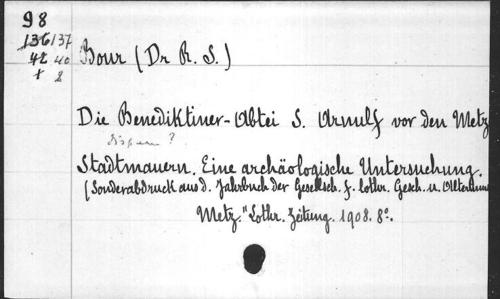 98
136 137
42 40
+ 2
Bour (Dr R. S.)
Die Benediktiner-Abtei S. Arnulf vor den Metz
Stadtmauern. Eine archäologische Untersuchung.
(Sonderabdruck aus d. Jahrbuch der Gesellsch. f. lothr. Gesch. u. Altertums
Metz. "Lothr. Zeitung. 1908. 8°.